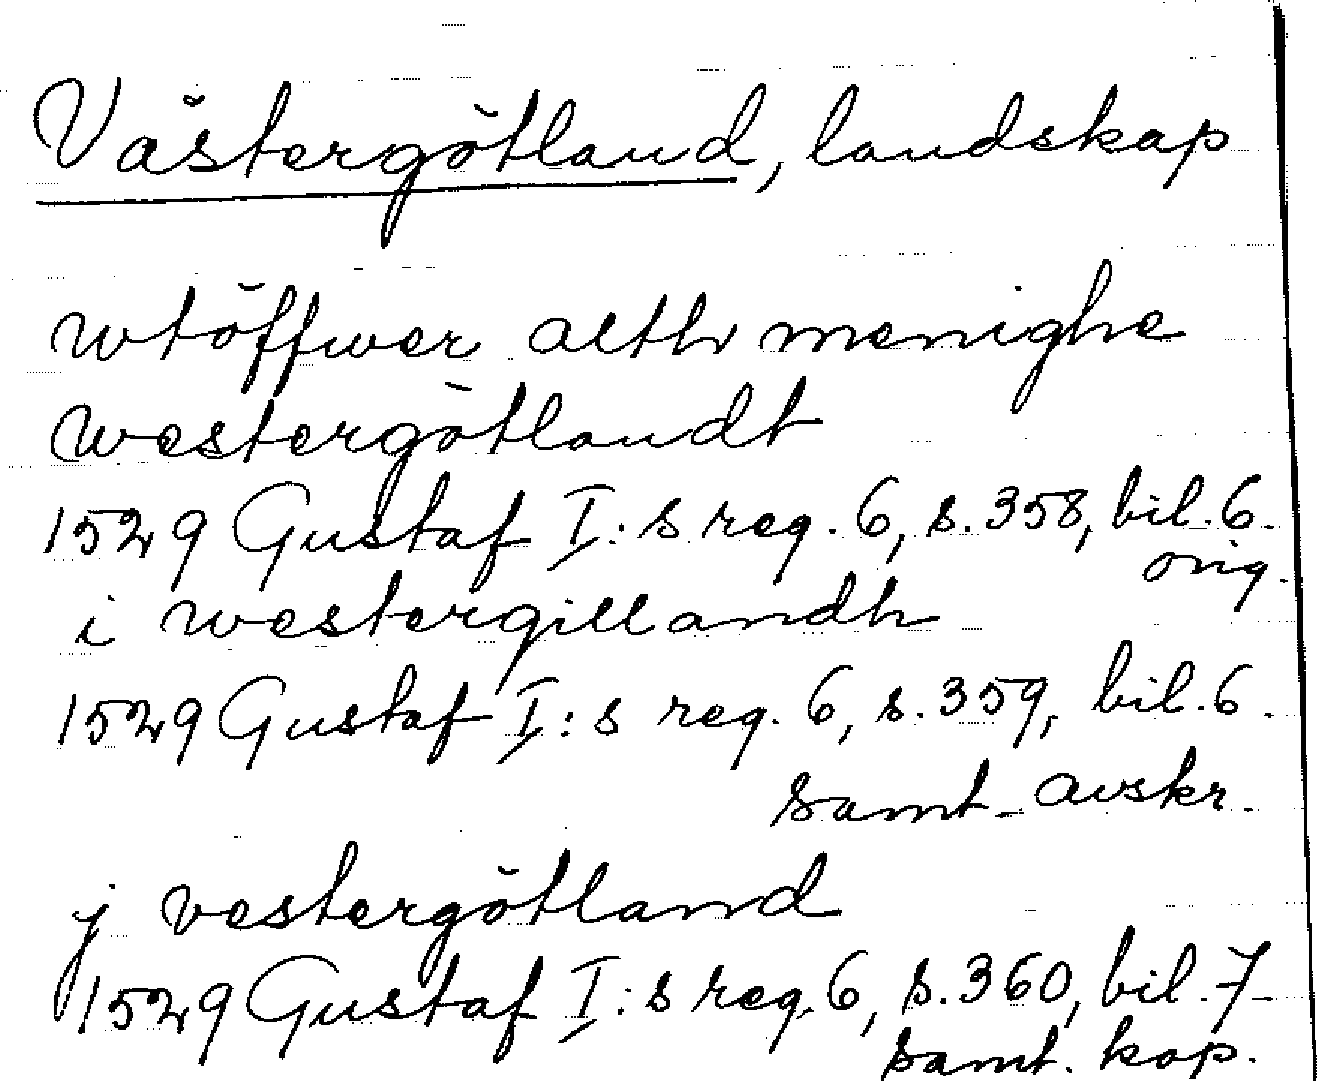 Västergötland, landskap
wtöffwer alth menighe
westergötlandt
1529 Gustaf I:s reg. 6, s. 358, bil. 6.
orig.
i westergillandh
1529 Gustaf I:s reg. 6, s. 359, bil. 6.
samt. avskr.
j vestergötland
1529 Gustaf I:s reg. 6, s. 360, bil. 7
samt. kop.